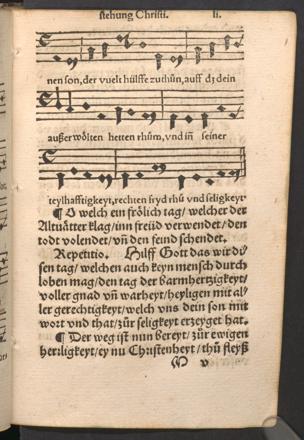 stehung Christi. li.
nen son, der vuelt hülffe zuthün, auff dz dein
außerwölten hetten rhům, vnd iñ seiner
teylhafftigkeyt, rechten fryd rhů vnd seligkeyt.
¶ O welch ein frölich tag/ welcher der
Altuätter klag/ inn freüd verwendet/ den
todt volendet/ vñ den feind schendet.
Repetitio. Hilff Gott das wir di-
sen tag/ welchen auch keyn mensch durch
loben mag/ den tag der barmhertzigkeyt/
voller gnad vñ warheyt/ heyligen mit al-
ler gerechtigkeyt/ welch vns dein son mit
wort vnd that/ zůr seligkeyt erzeyget hat.
¶ Der weg ist nun bereyt/ zůr ewigen
herrligkeyt/ ey nu Christenheyt/ thů fleyß
M v